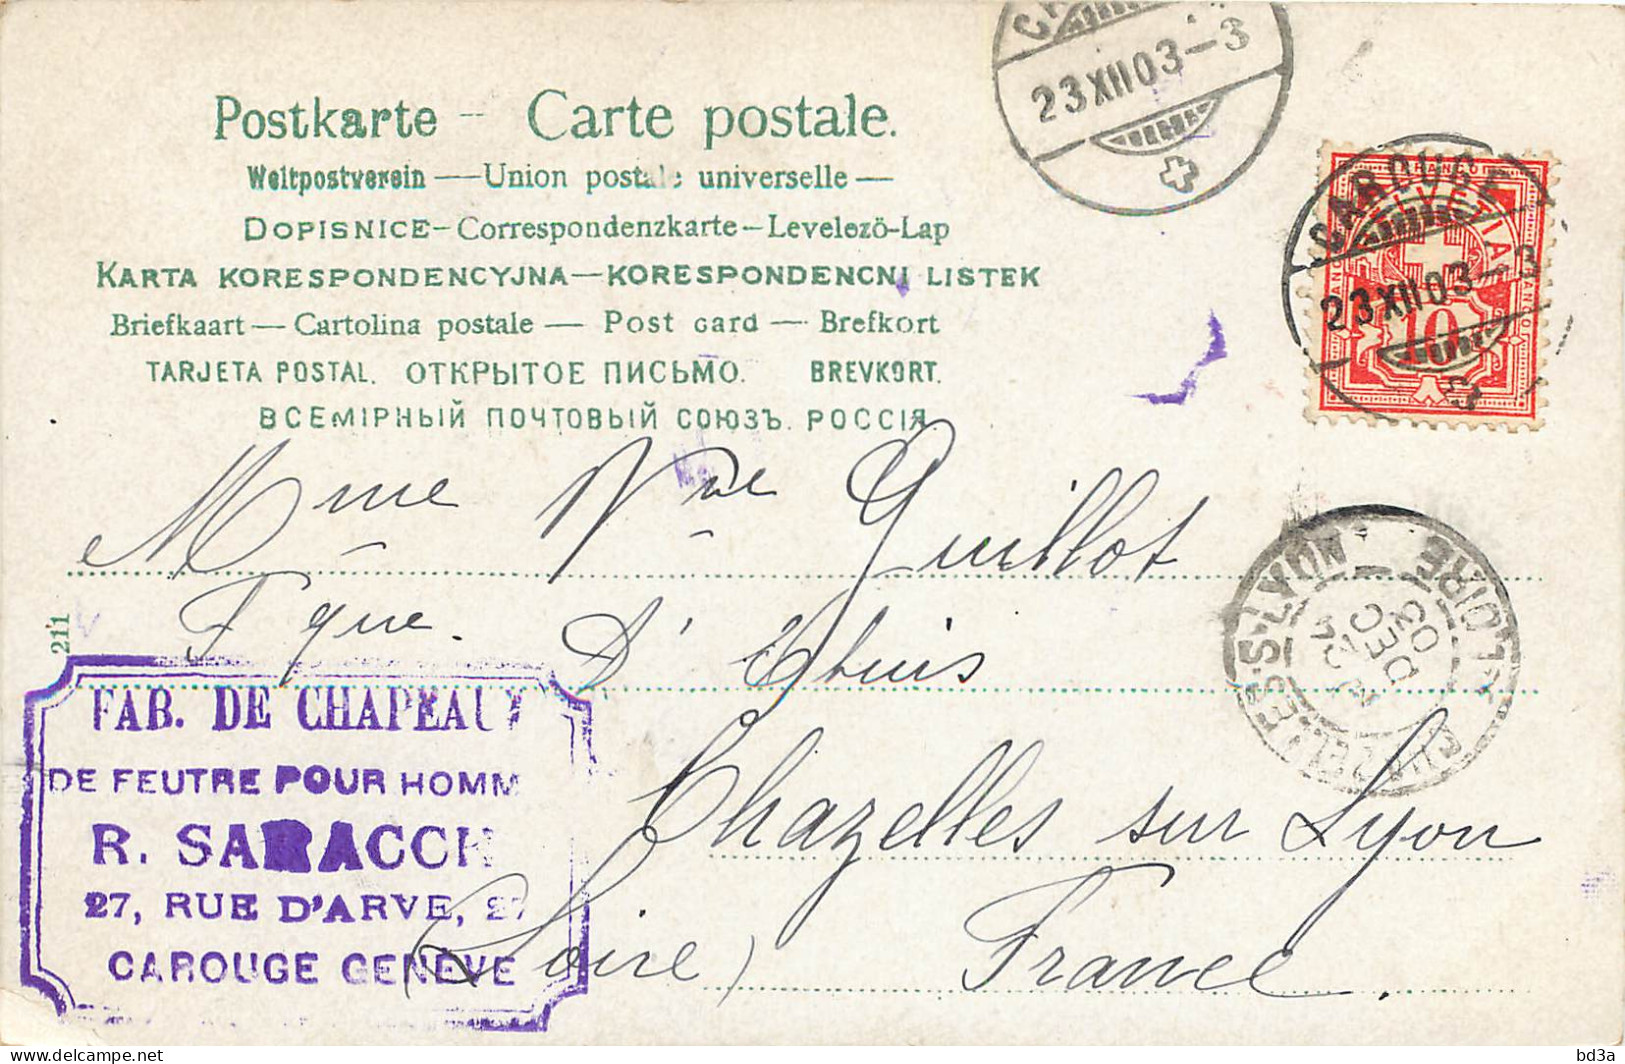 Postkarte - Carte postale.
Weltpostverein — Union postale universelle —
DOPISNICE - Correspondenzkarte - Levelező-Lap
KARTA KORESPONDENCYJNA — KORESPONDENCNI LISTEK
Briefkaart — Cartolina postale — Post card — Brefkort
TARJETA POSTAL. ОТКРЫТОЕ ПИСЬМО. BREVKORT.
ВСЕМІРНЫЙ ПОЧТОВЫЙ СОЮЗЪ. РОССІЯ
23 XII 03 - 3
CAROUGE
23 XII 03 - 3
HELVETIA
10
Mme Vve Guillot
Fque. D'Etuis
Chazelles sur Lyon
(Loire) France.
211
FAB. DE CHAPEAUX
DE FEUTRE POUR HOMM
R. SARACCH
27, RUE D'ARVE, 27
CAROUGE GENÈVE
CHAZELLES-S-LYON
LOIRE
24
DEC
03
delcampe.net
bd3a